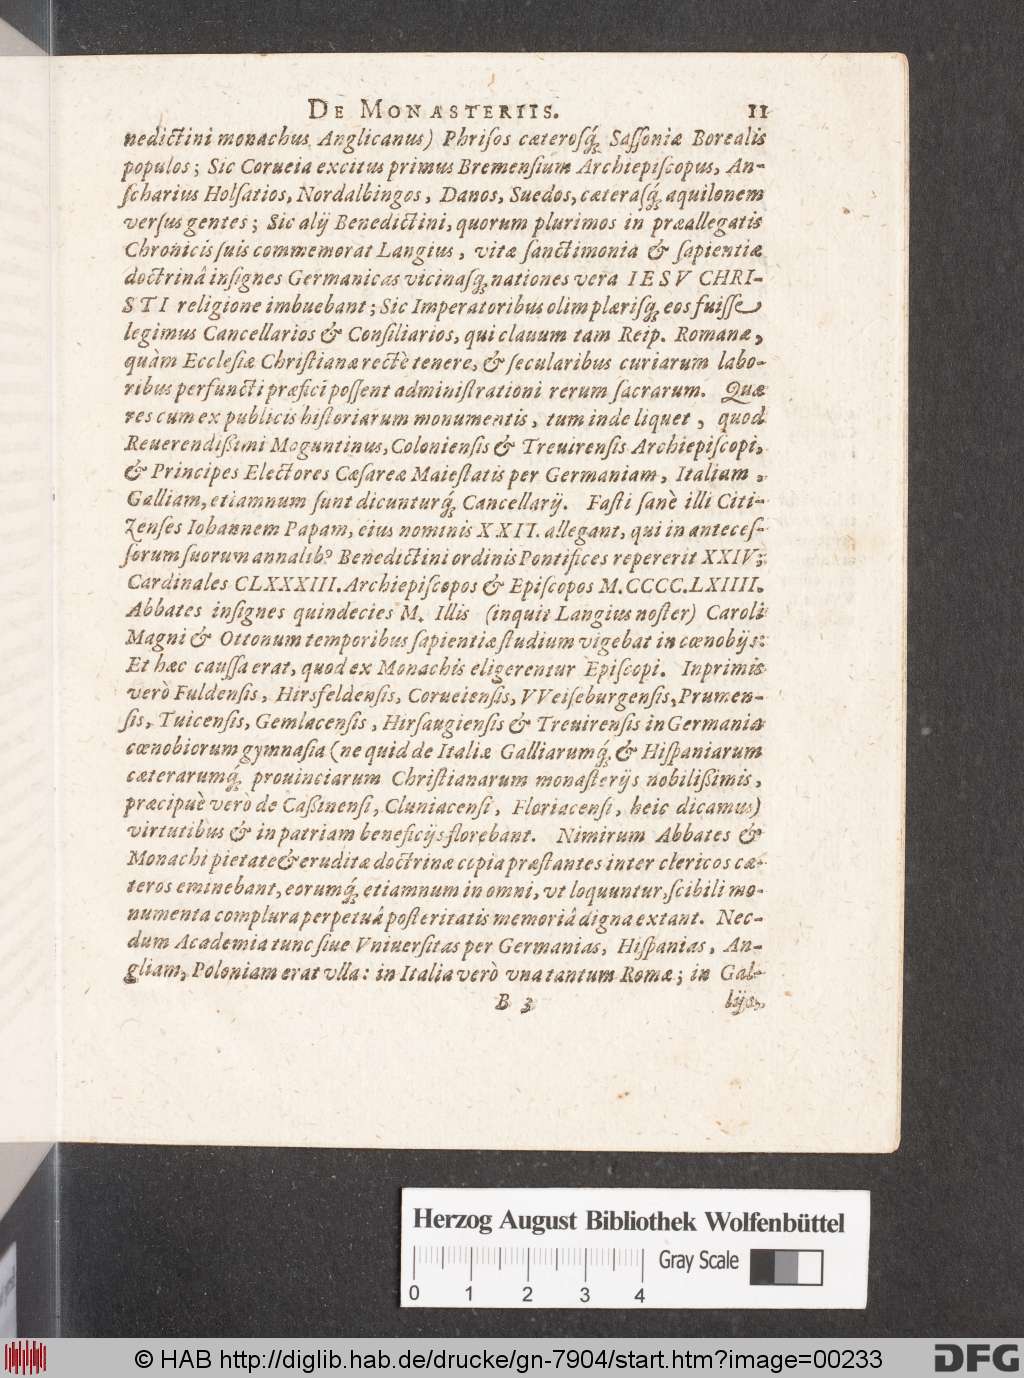 DE MONASTERIIS. 11
nedictini monachus Anglicanus) Phrisos cæterosq́; Saſſoniæ Borealis
populos; Sic Corueia excitus primus Bremenſium Archiepiſcopus, An-
ſcharius Holſatios, Nordalbingos, Danos, Suedos, cæteraſq́; aquilonem
verſus gentes; Sic alij Benedictini, quorum plurimos in præallegatis
Chronicis ſuis commemorat Langius, vitæ ſanctimonia & ſapientiæ
doctrinâ inſignes Germanicas vicinaſq́; nationes vera IESV CHRI-
STI religione imbuebant; Sic Imperatoribus olim plæriſq́; eos fuiſſe
legimus Cancellarios & Conſiliarios, qui clauum tam Reip. Romanæ,
quàm Eccleſiæ Chriſtianæ rectè tenere, & ſecularibus curiarum labo-
ribus perfuncti præfici poſſent adminiſtrationi rerum ſacrarum. Quæ
res cum ex publicis hiſtoriarum monumentis, tum inde liquet, quod
Reuerendißimi Moguntinus, Colonienſis & Treuirenſis Archiepiſcopi,
& Principes Electores Cæſareæ Maieſtatis per Germaniam, Italiam,
Galliam, etiamnum ſunt dicunturq́; Cancellarij. Faſti ſanè illi Citi-
zenſes Iohannem Papam, eius nominis XXII. allegant, qui in anteceſ-
ſorum ſuorum annalib9 Benedictini ordinis Pontifices repererit XXIV;
Cardinales CLXXXIII. Archiepiſcopos & Epiſcopos M.CCCC.LXIIII.
Abbates inſignes quindecies M. Illis (inquit Langius noſter) Caroli
Magni & Ottonum temporibus ſapientiæ ſtudium vigebat in cœnobijs:
Et hæc cauſſa erat, quod ex Monachis eligerentur Epiſcopi. Inprimis
verò Fuldenſis, Hirsfeldenſis, Corueienſis, VVeiſeburgenſis, Prumen-
ſis, Tuicenſis, Gemlacenſis, Hirſaugienſis & Treuirenſis in Germania
cœnobiorum gymnaſia (ne quid de Italiæ Galliarumq́; & Hiſpaniarum
cæterarumq́; prouinciarum Chriſtianarum monaſterijs nobilißimis,
præcipuè verò de Caßinenſi, Cluniacenſi, Floriacenſi, heic dicamus)
virtutibus & in patriam beneficijs florebant. Nimirum Abbates &
Monachi pietate & eruditæ doctrinæ copia præſtantes inter clericos cæ-
teros eminebant, eorumq́; etiamnum in omni, vt loquuntur, ſcibili mo-
numenta complura perpetuâ poſteritatis memoriâ digna extant. Nec-
dum Academia tunc ſiue Vniuerſitas per Germanias, Hiſpanias, An-
gliam, Poloniam erat vlla: in Italia verò vna tantum Romæ; in Gal-
B 3 lijs,
Herzog August Bibliothek Wolfenbüttel
Gray Scale
0 1 2 3 4
© HAB http://diglib.hab.de/drucke/gn-7904/start.htm?image=00233
DFG